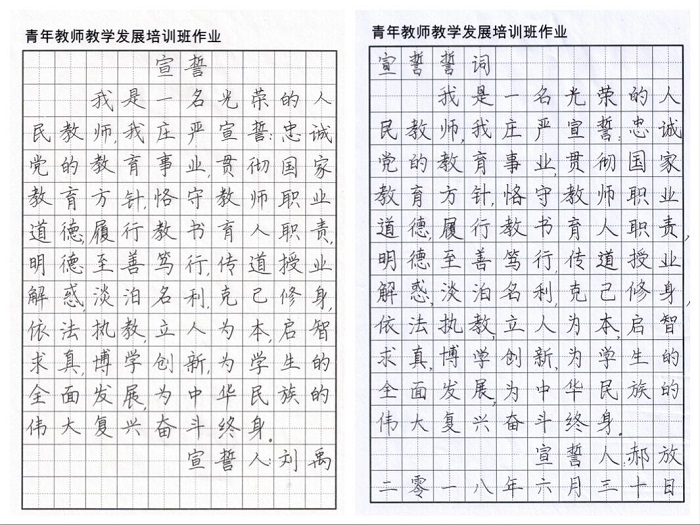 青年教师教学发展培训班作业
宣誓
我是一名光荣的人
民教师,我庄严宣誓:忠诚
党的教育事业,贯彻国家
教育方针,恪守教师职业
道德,履行教书育人职责,
明德至善笃行,传道授业
解惑,淡泊名利,克己修身,
依法执教,立人为本,启智
求真,博学创新,为学生的
全面发展,为中华民族的
伟大复兴奋斗终身。
宣誓人:刘禹
青年教师教学发展培训班作业
宣誓誓词
我是一名光荣的人
民教师,我庄严宣誓:忠诚
党的教育事业,贯彻国家
教育方针,恪守教师职业
道德,履行教书育人职责,
明德至善笃行,传道授业
解惑,淡泊名利,克己修身,
依法执教,立人为本,启智
求真,博学创新,为学生的
全面发展,为中华民族的
伟大复兴奋斗终身。
宣誓人:郝放
二零一八年六月三十日